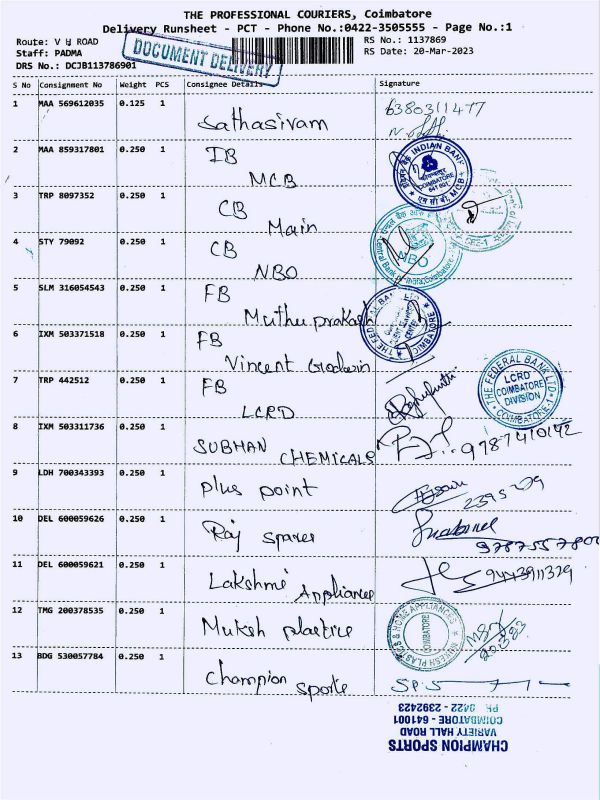 THE PROFESSIONAL COURIERS, Coimbatore
Delivery Runsheet - PCT - Phone No.:0422-3505555 - Page No.:1
Route: V H ROAD
RS No.: 1137869
Staff: PADMA
RS Date: 20-Mar-2023
DRS No.: DCJB113786901
DOCUMENT DELIVERY
S No Consignment No Weight PCS Consignee Details Signature
1 MAA 569612035 0.125 1 Sathasivam 6380311477
2 MAA 859317801 0.250 1 IB MCB
INDIAN BANK COIMBATORE 641 001 MCB
3 TRP 8097352 0.250 1 CB Main
4 STY 79092 0.250 1 CB NBO
Central Bank of India, Coimbatore NBO
5 SLM 316054543 0.250 1 FB Muthu prakash
THE FEDERAL BANK LTD COIMBATORE
6 IXM 503371518 0.250 1 FB Vincent Godwin
7 TRP 442512 0.250 1 FB LCRD
THE FEDERAL BANK LTD. LCRD COIMBATORE DIVISION COIMBATORE-1
8 IXM 503311736 0.250 1 SUBHAN CHEMICALS 9787410142
9 LDH 700343393 0.250 1 plus point
10 DEL 600059626 0.250 1 Raj spares
11 DEL 600059621 0.250 1 Lakshmi Appliances 9443911329
12 TMG 200378535 0.250 1 Mukesh plastics
PLASTICS & HOME APPLIANCES COIMBATORE
20.3.23
13 BDG 530057784 0.250 1 Champion sports SPS
CHAMPION SPORTS
VARIETY HALL ROAD
COIMBATORE - 641001
PH: 0422 - 2392423